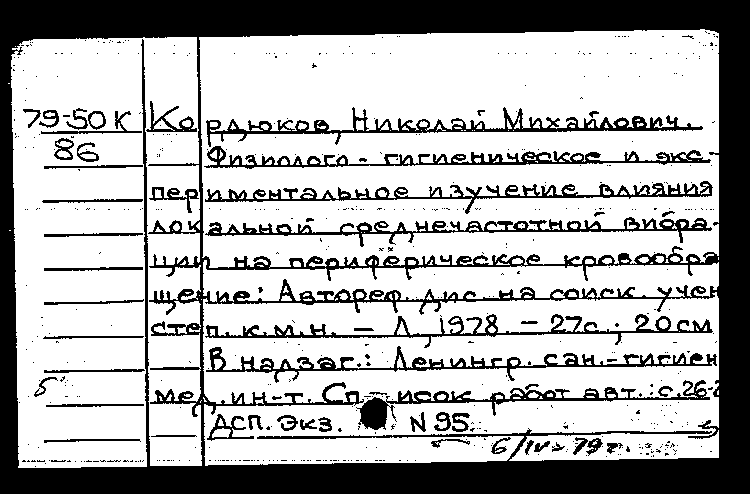 79-50 К Кордюков, Николай Михайлович.
86 Физиолого-гигиеническое и экс-
периментальное изучение влияния
локальной среднечастотной вибра-
ции на периферическое кровообра
щение: Автореф. дис. на соиск. учен
степ. к.м.н. — Л., 1978. — 27с.; 20см
В надзаг.: Ленингр. сан.-гигиен
5 мед. ин-т. Список работ авт.: с.26-2
ДСП. Экз. N 95.
6/IV-79 г.